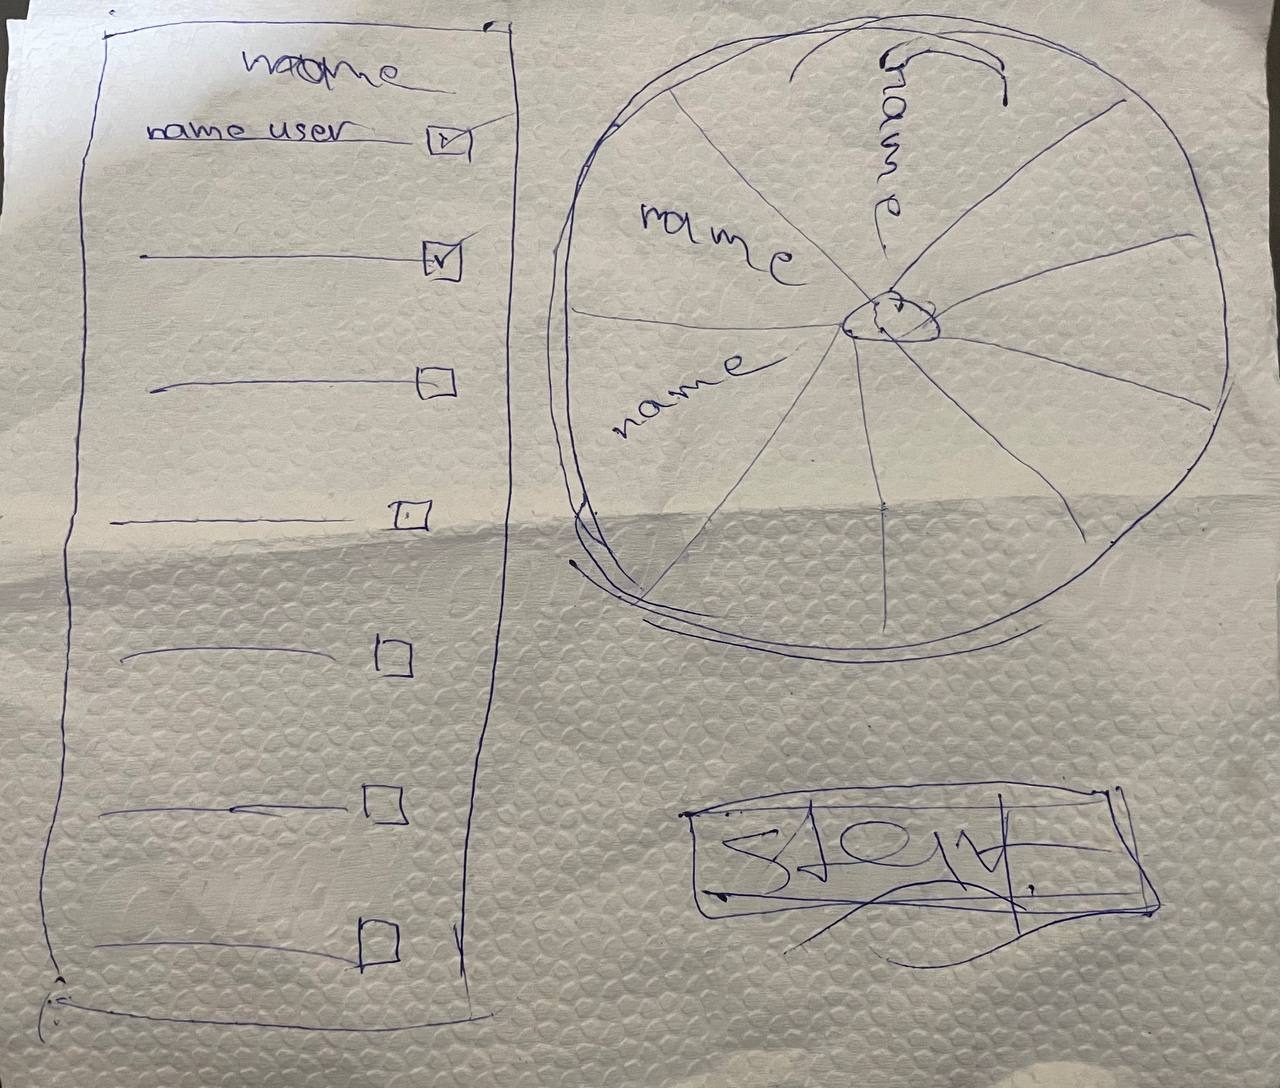 name
name user
name
name
name